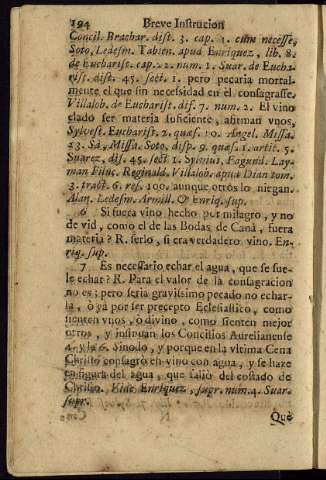 194 Breve Instrucion
Concil. Brachar. dist. 3. cap. 1. cum necesse,
Soto, Ledesm. Tabien. apud Enriquez, lib. 8.
de Eucharist. cap. 22. num. 1. Suar. de Eucha-
rist. dist. 45. sect. 1. pero pecaria mortal-
mente el que sin necessidad en èl consagrasse.
Villalob. de Eucharist. dif. 7. num. 2. El vino
elado ser materia suficiente, afirman vnos,
Sylvest. Eucharist. 2. quæs. 10. Angel. Missa.
23. Sà, Missa. Soto, disp. 9. quæs. 1. artic. 5.
Suarez, dis. 45. sect. 1. Sylvius, Fagund. Lay-
man Filuc. Reginald. Villalob. apud Dian. tom.
3. tract. 6. res. 100. aunque otros lo niegan.
Alan. Ledesm. Armill. & Enriq. sup.
6 Si fuera vino hecho por milagro, y no
de vid, como el de las Bodas de Canà, fuera
materia? R. serlo, si era verdadero vino. En-
riq. sup.
7 Es necessario echar el agua, que se sue-
le echar? R. Para el valor de la consagracion
no es; pero seria gravissimo pecado no echar-
la, ò ya por ser precepto Eclesiastico, como
sienten vnos, ò divino, como sienten mejor
otros, y insinuan los Concilios Aurelianense
4. y la 6. Sinodo, y porque en la vltima Cena
Christo consagrò en vino con agua, y se haze
en figura del agua, que saliò del costado de
Christo. Vide Enriquez, supr. num. 4. Suar.
supr.
Què